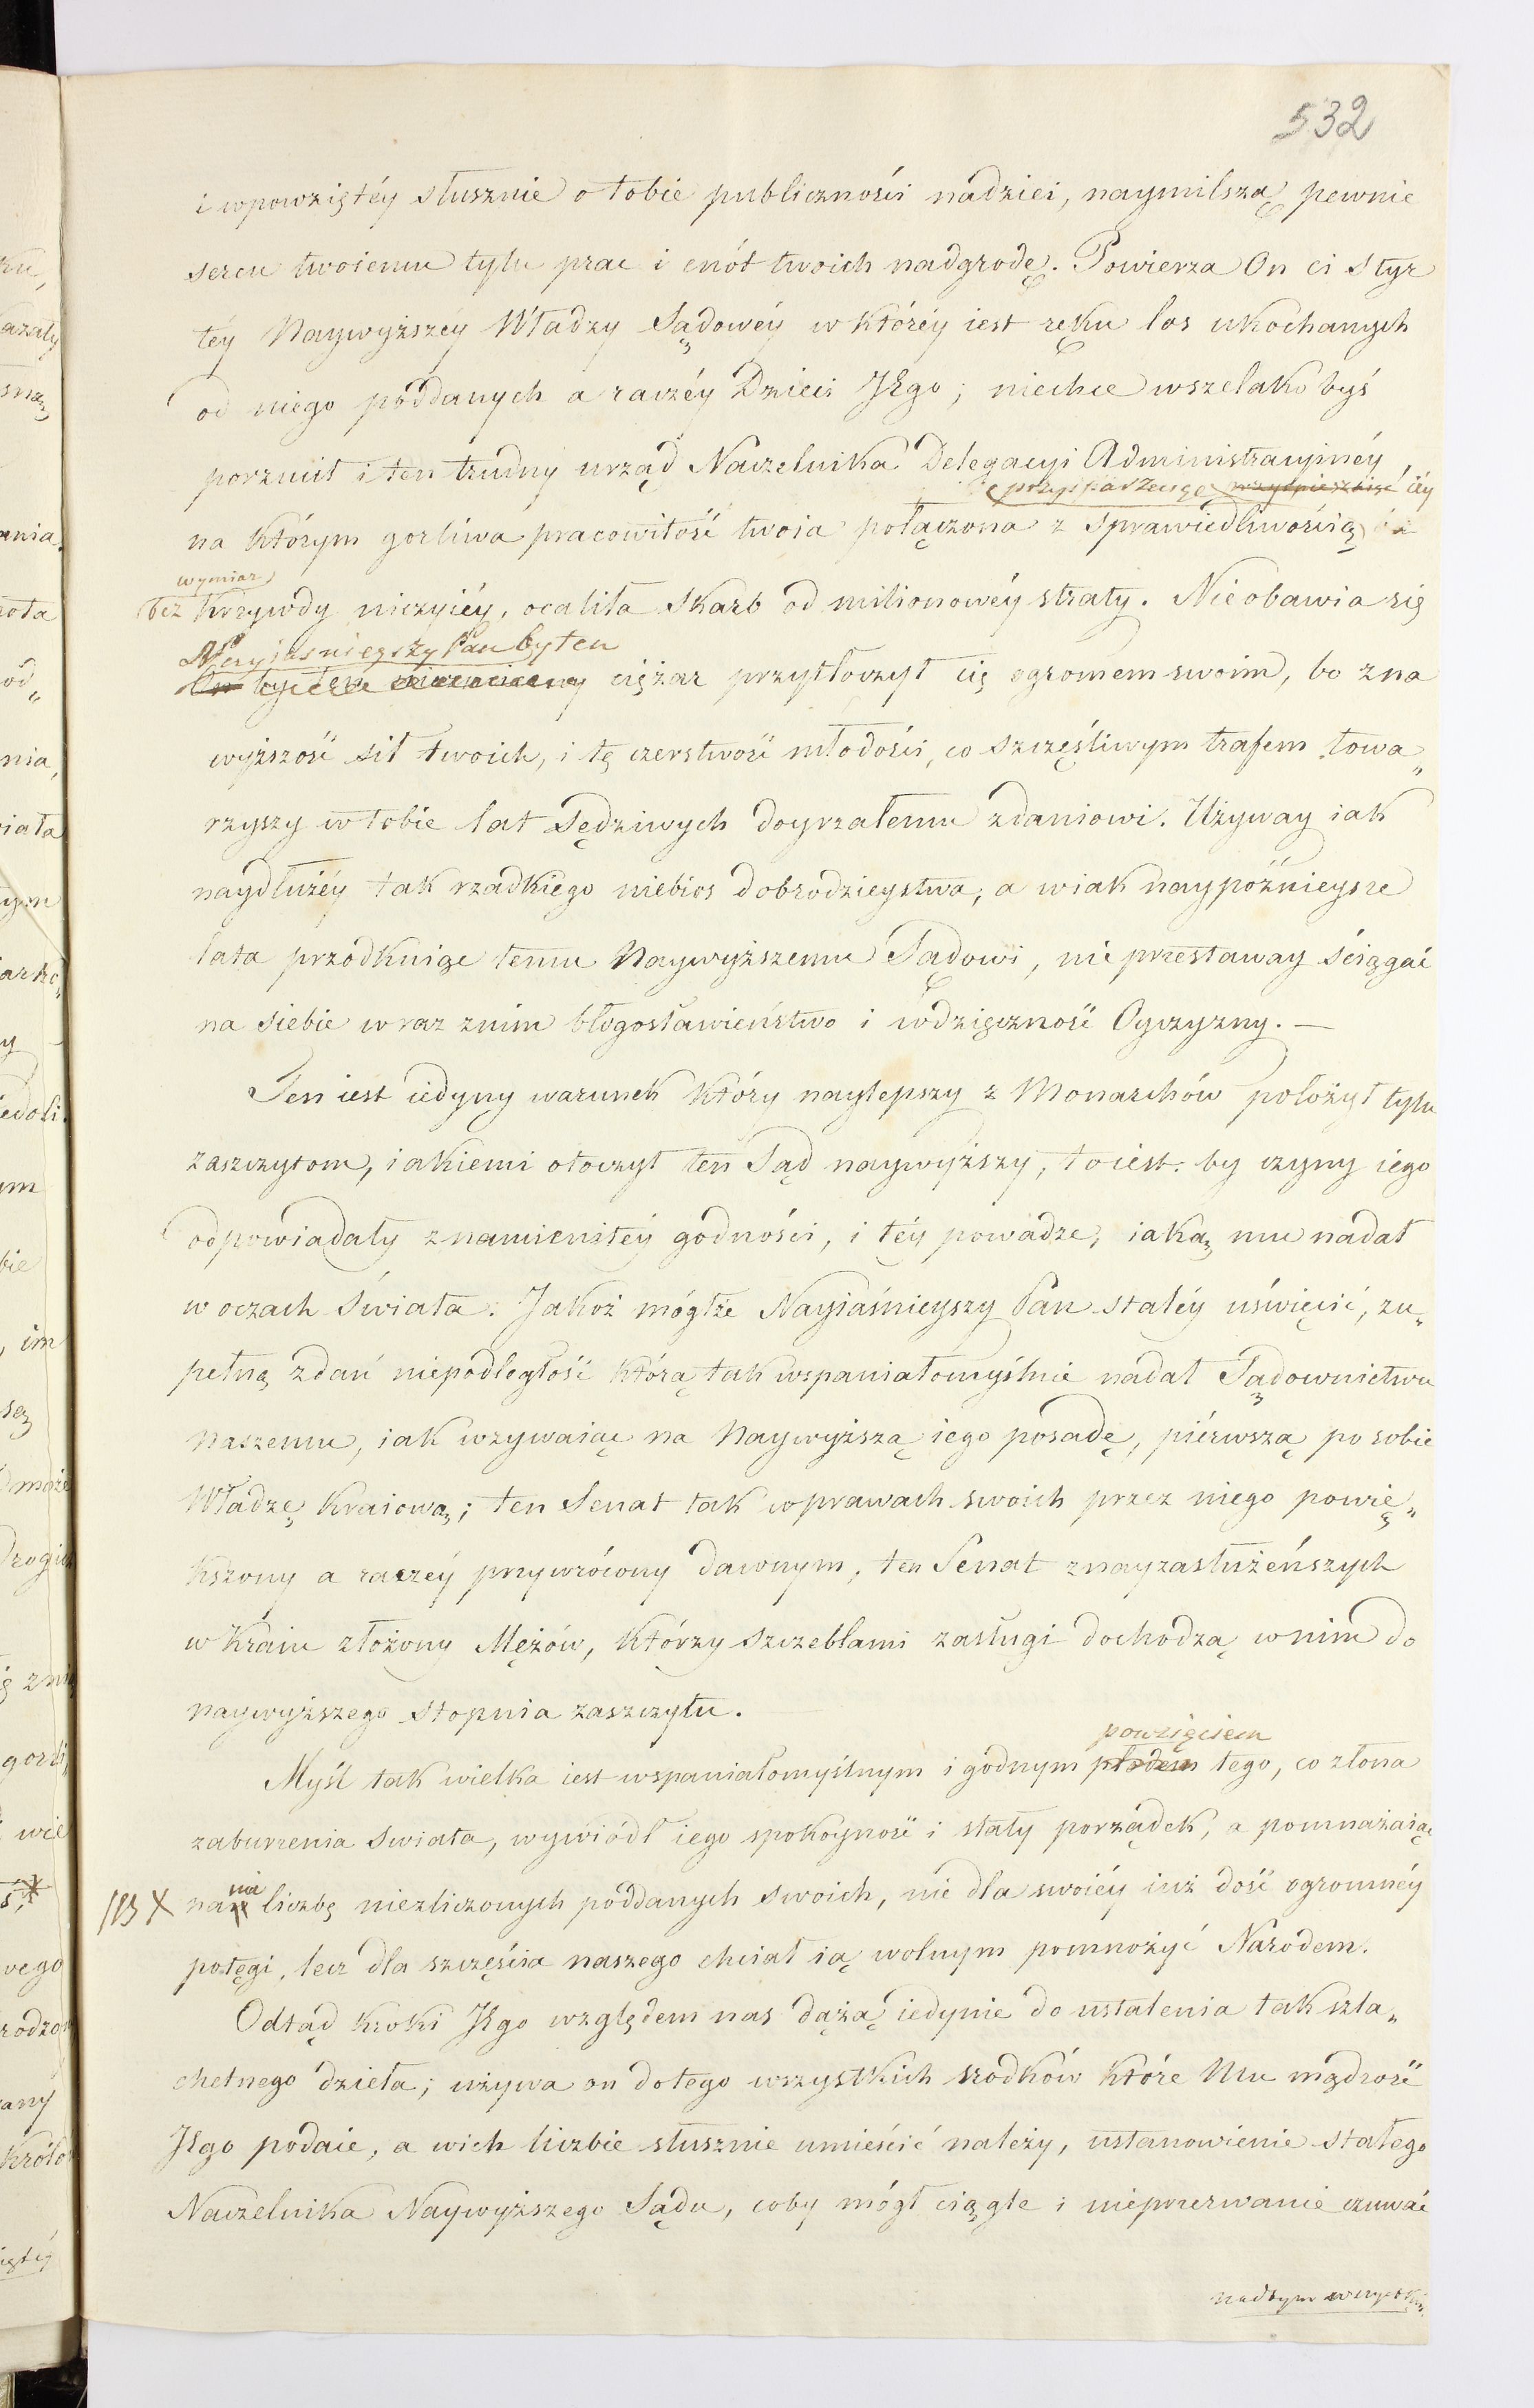 532
i wpowziętéy słusznie o tobie publiczności nadziei, naymilszą pewnie
sercu twoiemu tylu prac i cnót twoich nadgrodę. Powierza On ci styr
téy Naywyższéy Władzy Sądowéy w któréy iest ręku los ukochanych
od niego poddanych a raczéy Dzieci JEgo; niechce wszelako byś
porzucił i ten trudny urząd Naczelnika Delegacyi Administracyinéy,
przysparzaiąc iéy
na którym gorliwa pracowitość twoia połączona z sprawiedliwością
wymiar
bez krzywdy niczyiéy, ocaliła Skarb od milionowéy straty. Nieobawia się
Nayiaśnieyszy Pan by ten
ciężar przytłoczył cię ogromem swoim, bo zna
wyższość sił twoich, i tę czerstwość młodości, co szczęśliwym trafem towa„
rzyszy w tobie lat Sędziwych doyrzałemu zdaniowi. Używay iak
naydłużéy tak rzadkiego niebios dobrodzieystwa, a wiak naypóźnieysze
lata przodkuiąc temu Naywyższemu Sądowi, nie przestaway ściągać
na siebie wraz znim błogosławieństwo i wdzięczność Oyczyzny. —
Ten iest iedyny warunek który naylepszy z Monarchów położył tylu
zaszczytom, iakiemi otoczył ten Sąd naywyższy, to iest: by czyny iego
odpowiadały znamienitéy godności, i téy powadze, iaką mu nadał
w oczach Świata. Jakoż mógłże Nayiaśnieyszy Pan staléy uświęcić, zu„
pełną zdań niepodległość którą tak wspaniałomyślnie nadał Sądownictwu
naszemu, iak wzywaiąc na Naywyższą iego posadę, piérwszą po sobie
Władzę Kraiową; ten Senat tak w prawach swoich przez niego powię„
kszony a raczéy przywrócony dawnym, ten Senat z nayzasłużeńszych
w Kraiu złożony Mężów, którzy szczeblami zasługi dochodzą w nim do
naywyższego stopnia zaszczytu.
powzięciem
Myśl tak wielka iest wspaniałomyślnym i godnym płodem tego, co złona
zaburzenia świata, wywiódł iego spokoyność i stały porządek, a pomnażaiąc
X na mi liczbę niezliczonych poddanych swoich, nie dla swoiéy iuż dość ogromnéy
potęgi, lecz dla szczęścia naszego chciał ią wolnym pomnożyć Narodem.
Odtąd kroki JEgo względem nas dążą iedynie do ustalenia tak szla„
chetnego dzieła; używa on do tego wszystkich srodków które Mu mądrość
JEgo podaie, a wich liczbie słusznie umieścić należy, ustanowienie stałego
Naczelnika Naywyższego Sądu, coby mógł ciągle i nieprzerwanie czuwać
nadtym wszystkim